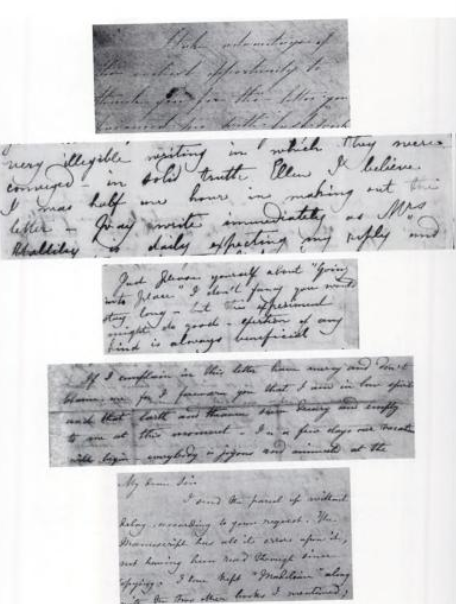 I take advantage of
the earliest opportunity to
thank you for the letter you
very illegible writing in which they were
conveyed - in sold truth Ellen I believe
I was half an hour in making out the
letter - Pray write immediately as Mrs
is daily expecting my reply and
Just yourself about "Going
into" I don't fancy you would
stay long - but the experiment
might do good - of any
kind is always beneficial
If I complain in this letter have mercy and don't
blame me for I forewarn you that I am in low spirits
and that earth and heaven seem dreary and empty
to me at this moment - In a few days our vacation
will begin everybody is joyous and animated at the
My dear Sir
I send the parcel up without
delay, according to your request. The
Manuscript has all its errors upon it,
not having been read through since
copying. I have kept "Madeleine" along
with the two other books I mentioned;